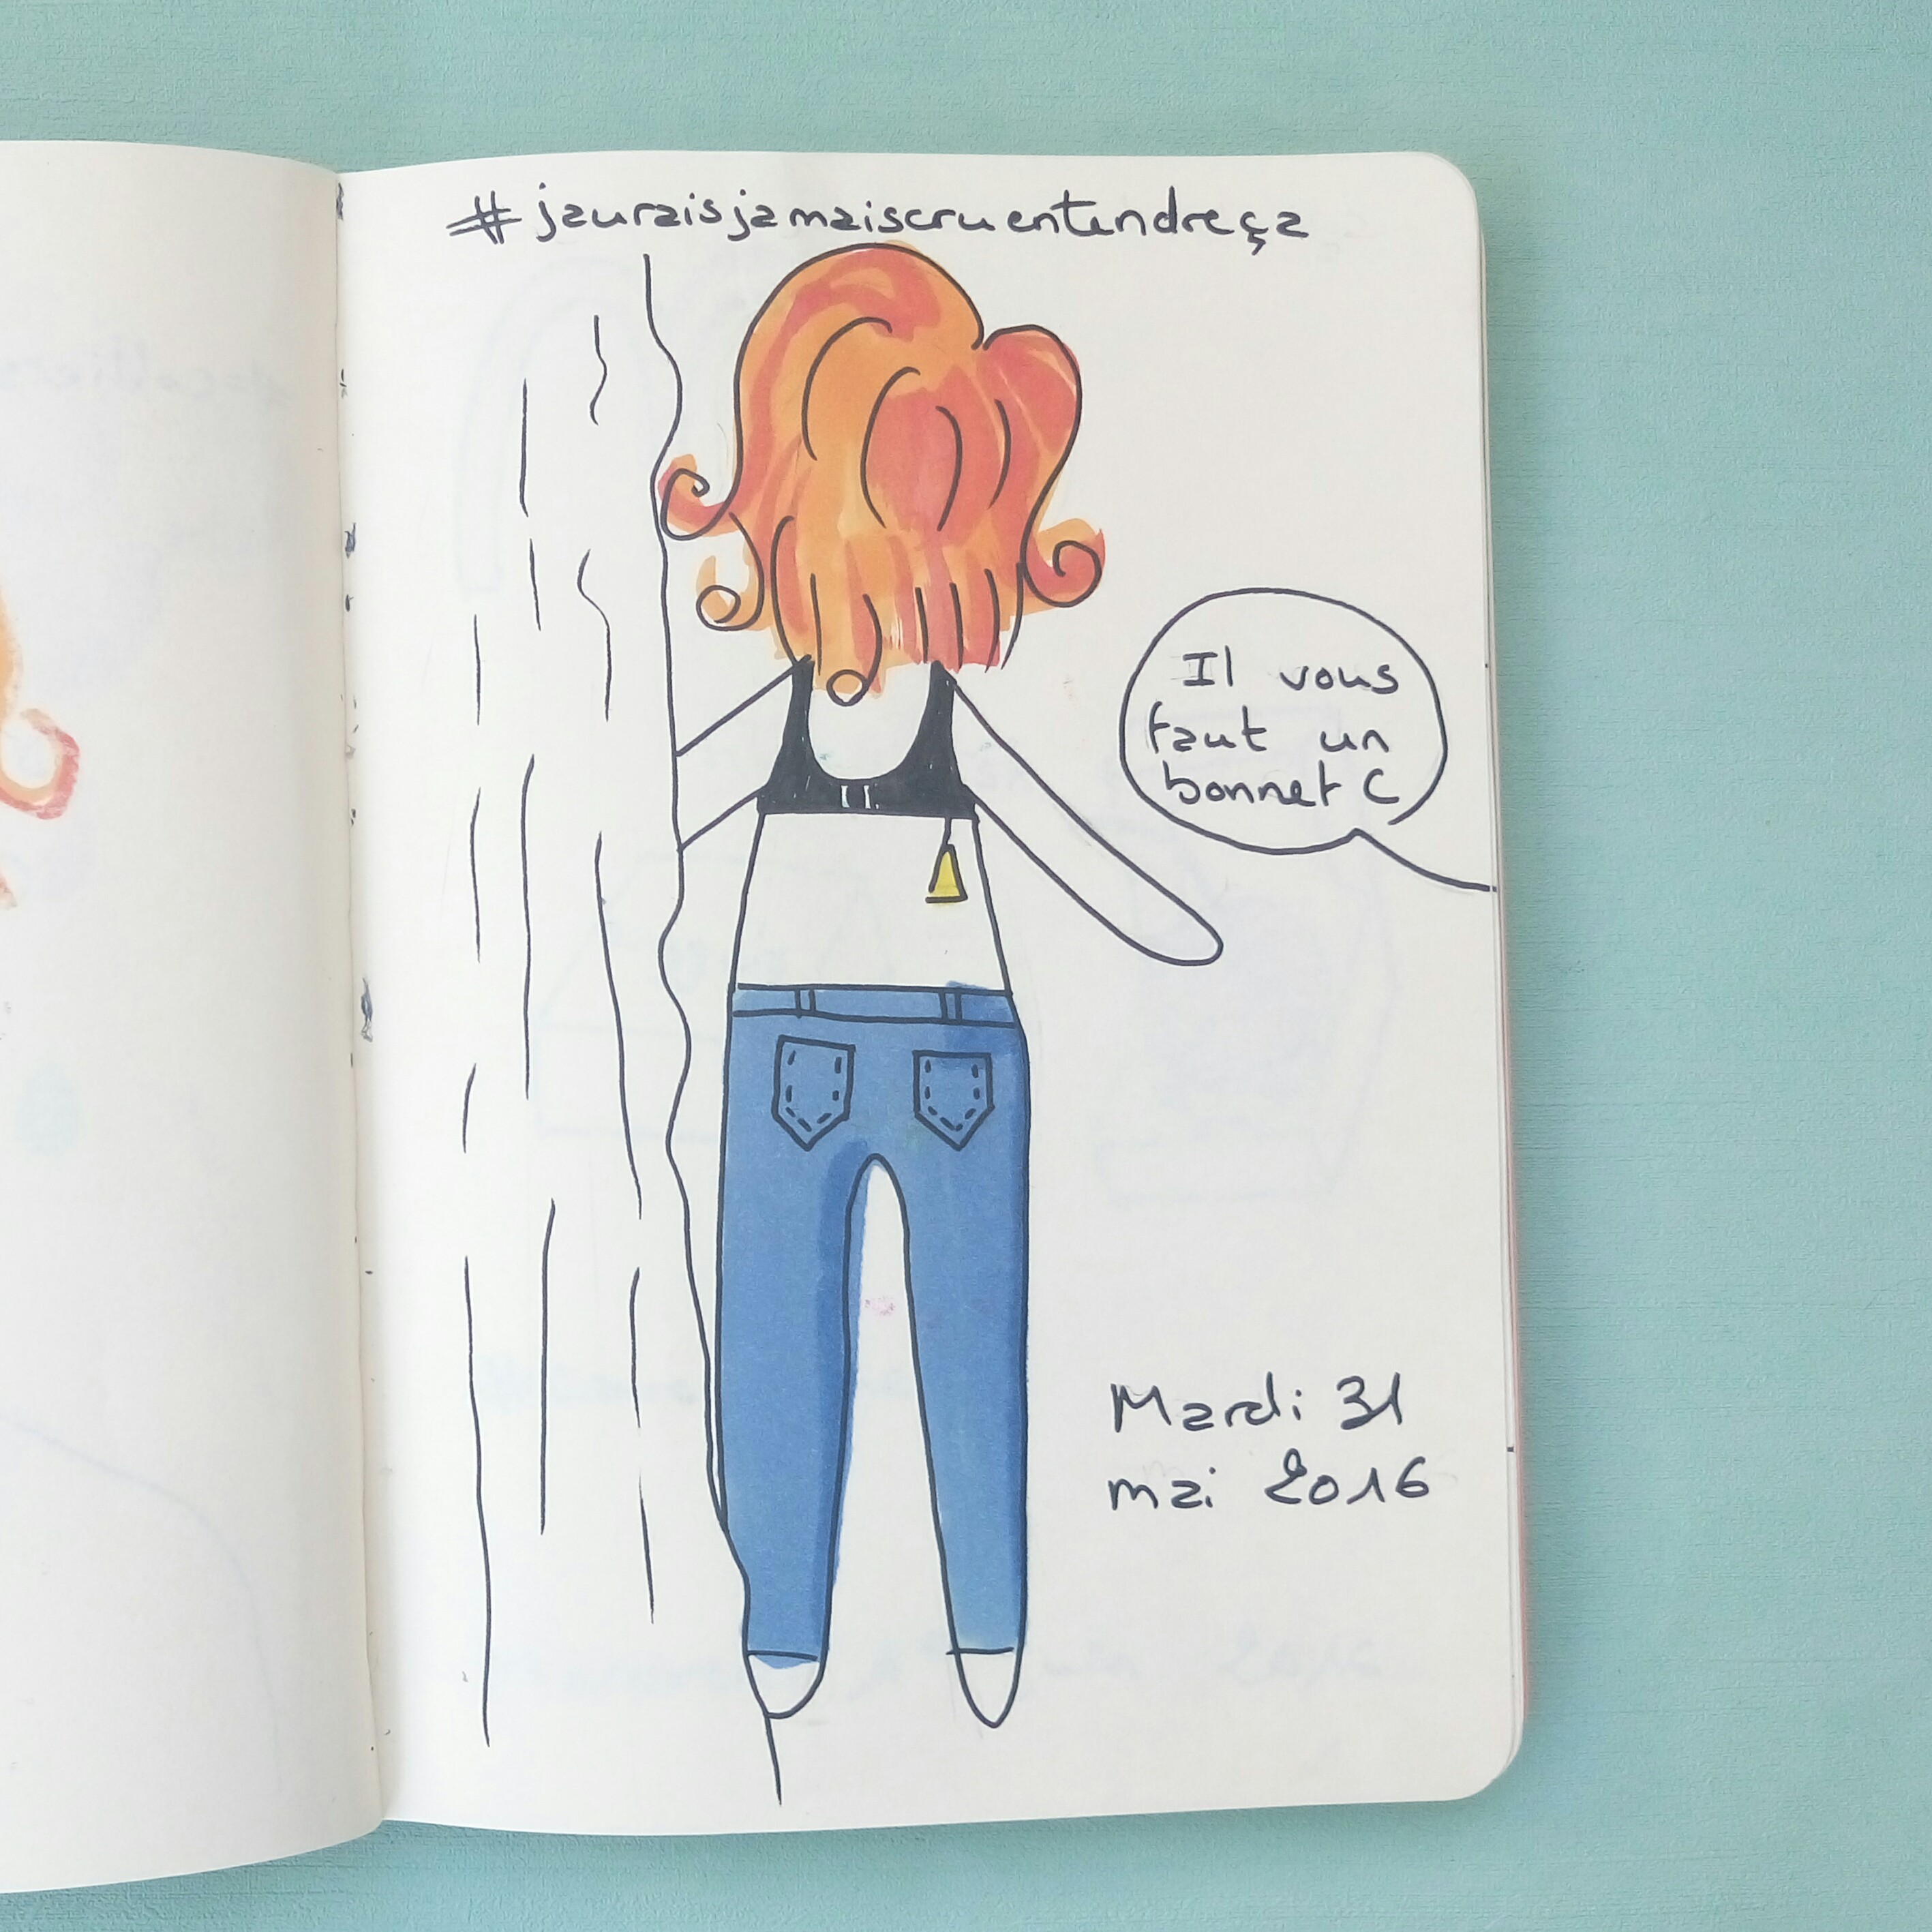 #jauraisjamaiscruentendreça
Il vous
faut un
bonnet C
Mardi 31
mai 2016